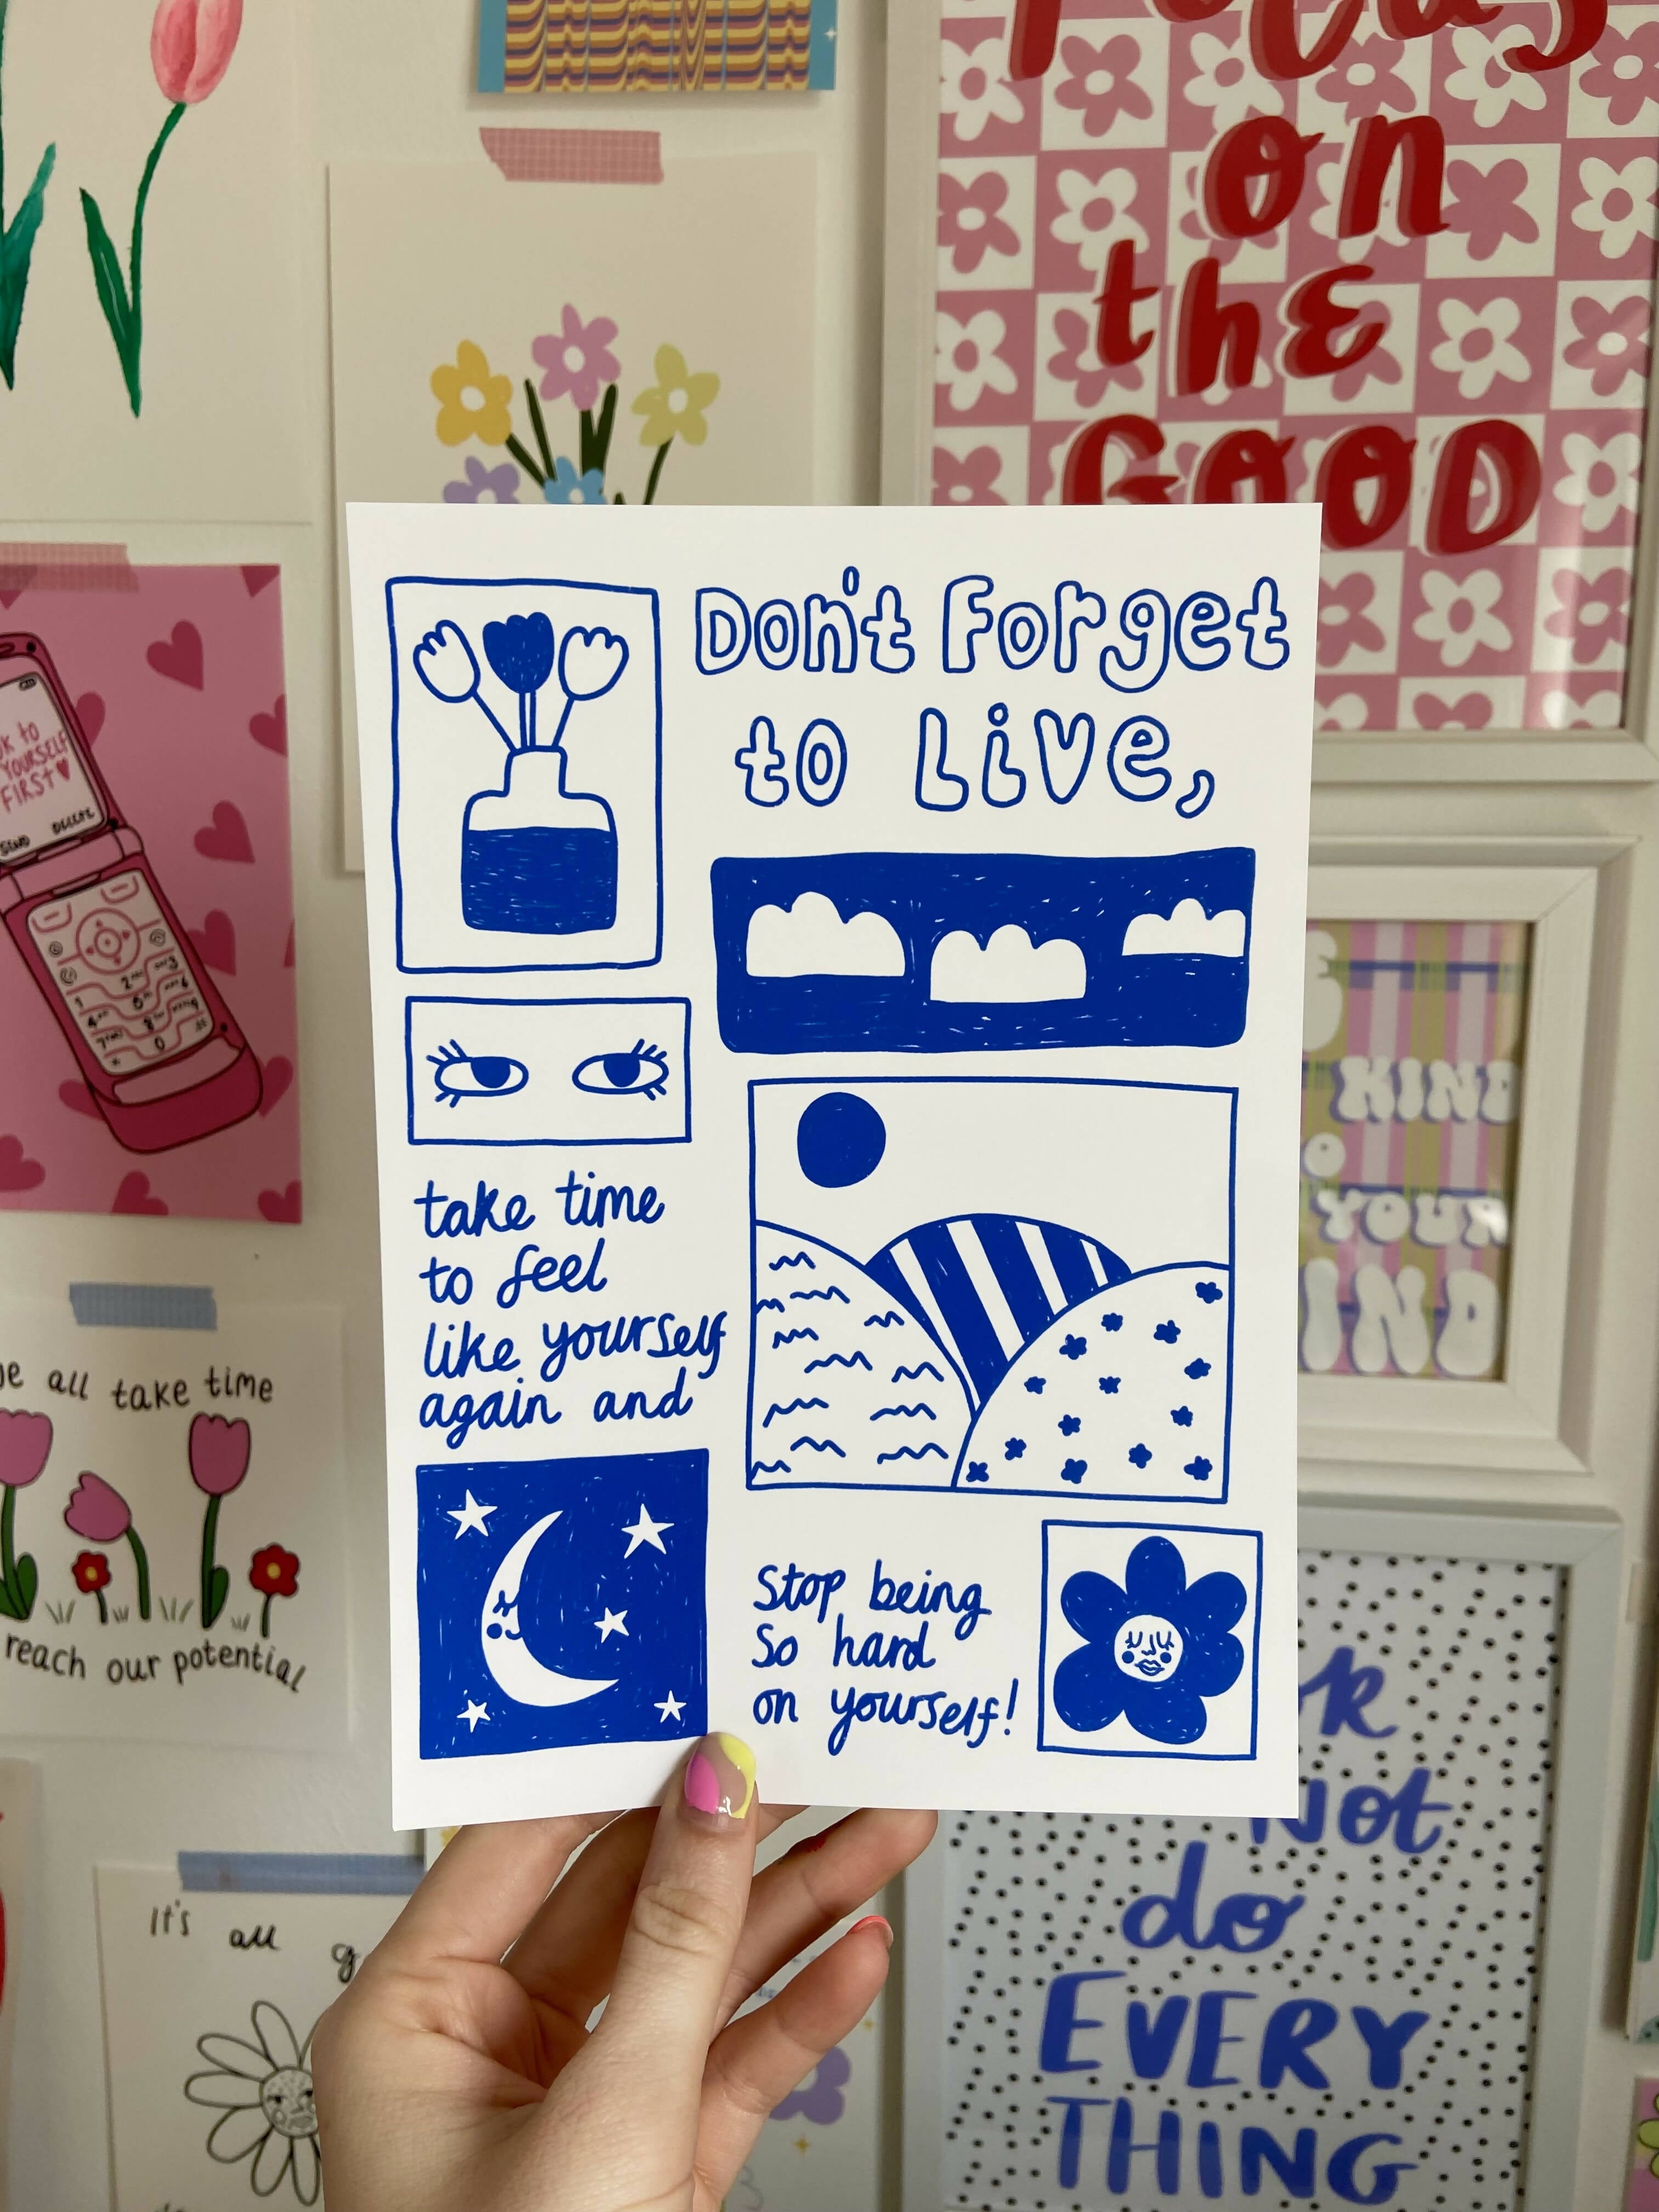 on
the
GOOD
Don't Forget
to Live,
take time
to feel
like yourself
again and
Stop being
So hard
on yourself!
TO
YOURSELF
FIRST
SEND DELETE
all take time
reach our potential
It's all
KIND
YOUR
Not
do
EVERY
THING